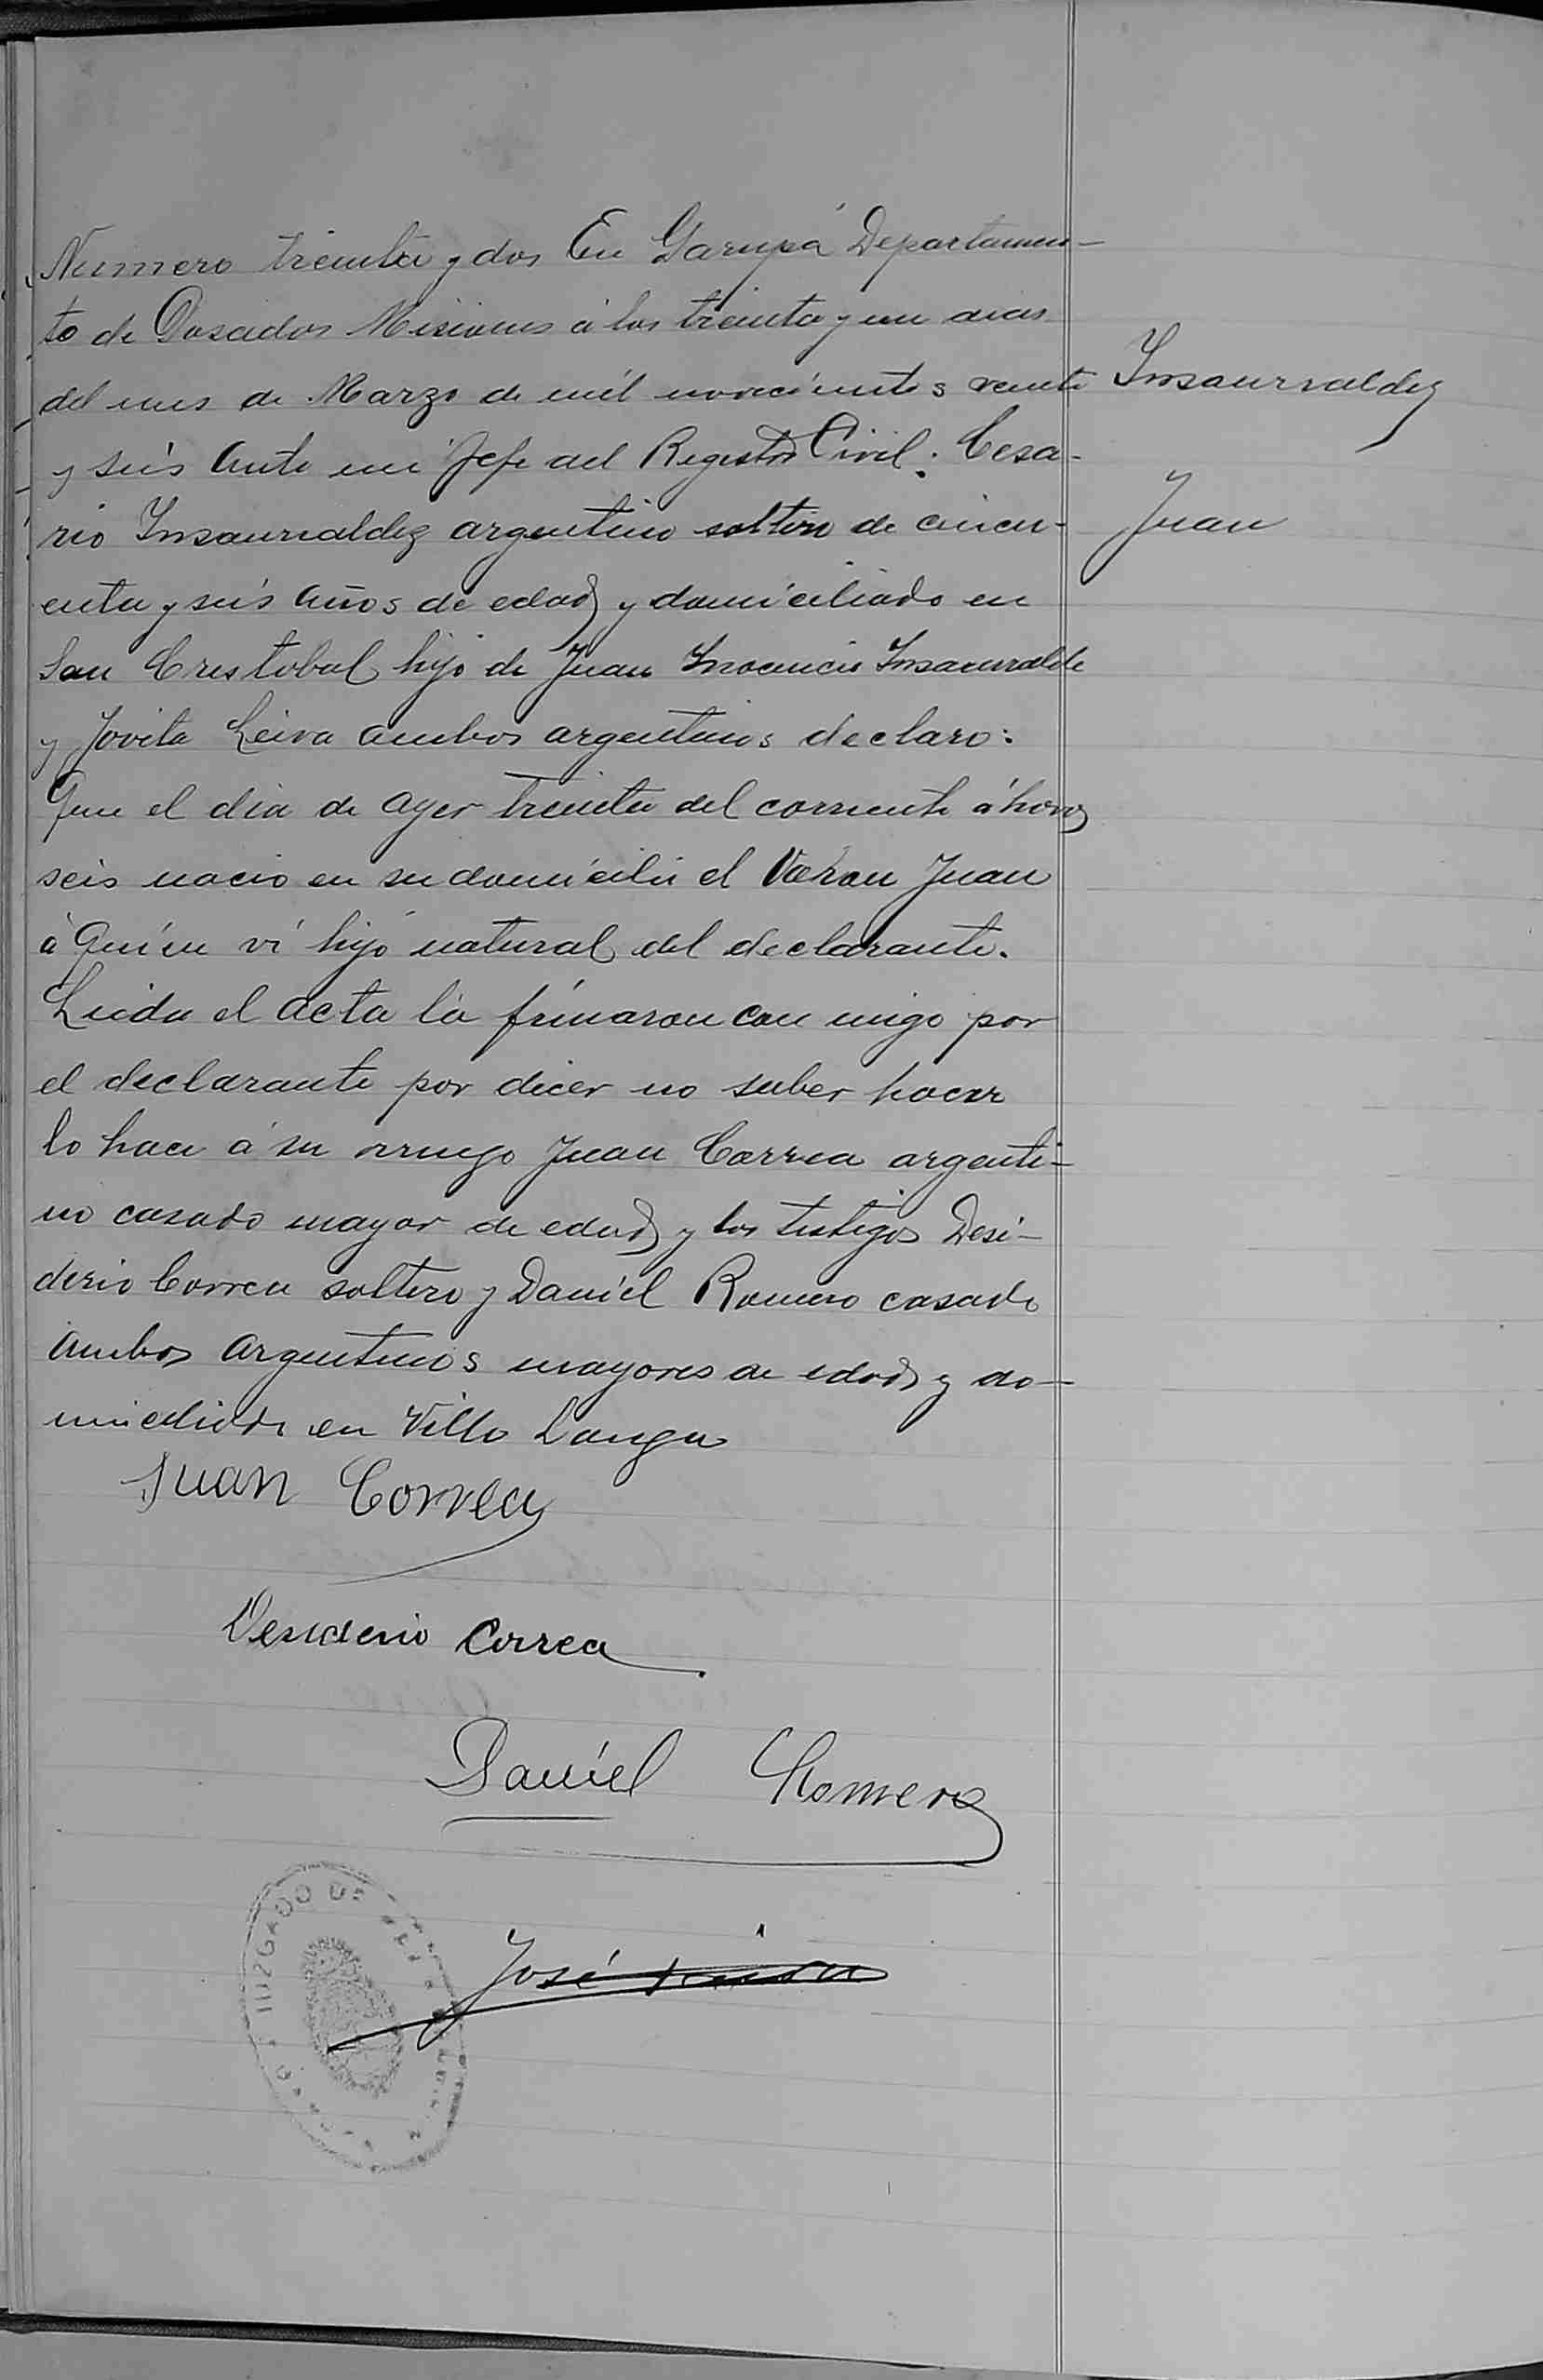 Numero treinta y dos En Garupá Departamen-
to de Posadas Misiones á los treinta y un dias
del mes de Marzo de mil novecientos veinte
y seis Ante mi Jefe del Registro Civil. Cesa-
rio Insaurraldez argentino soltero de cincu-
enta y seis años de edad y domiciliado en
San Cristobal hijo de Juan Inocencio Insaurralde
y Jovita Leiva ambos argentinos declaro:
Que el dia de ayer treinta del corriente á horas
seis nacio en su domicilio el Varon Juan
á Quien vi hijo natural del declarante.
Leida el acta la firmaron con migo por
el declarante por dicer no saber hacer
lo hace á su rruego Juan Correa argenti-
no casado mayor de edad y los testigos Desi-
derio Correa soltero y Daniel Romero casado
ambos argentinos mayores de edad y do-
miciliado en Villa Langa
Insaurraldez
Juan
Juan Correa
Desiderio Correa
Daniel Romero
José
JUZGADO DE